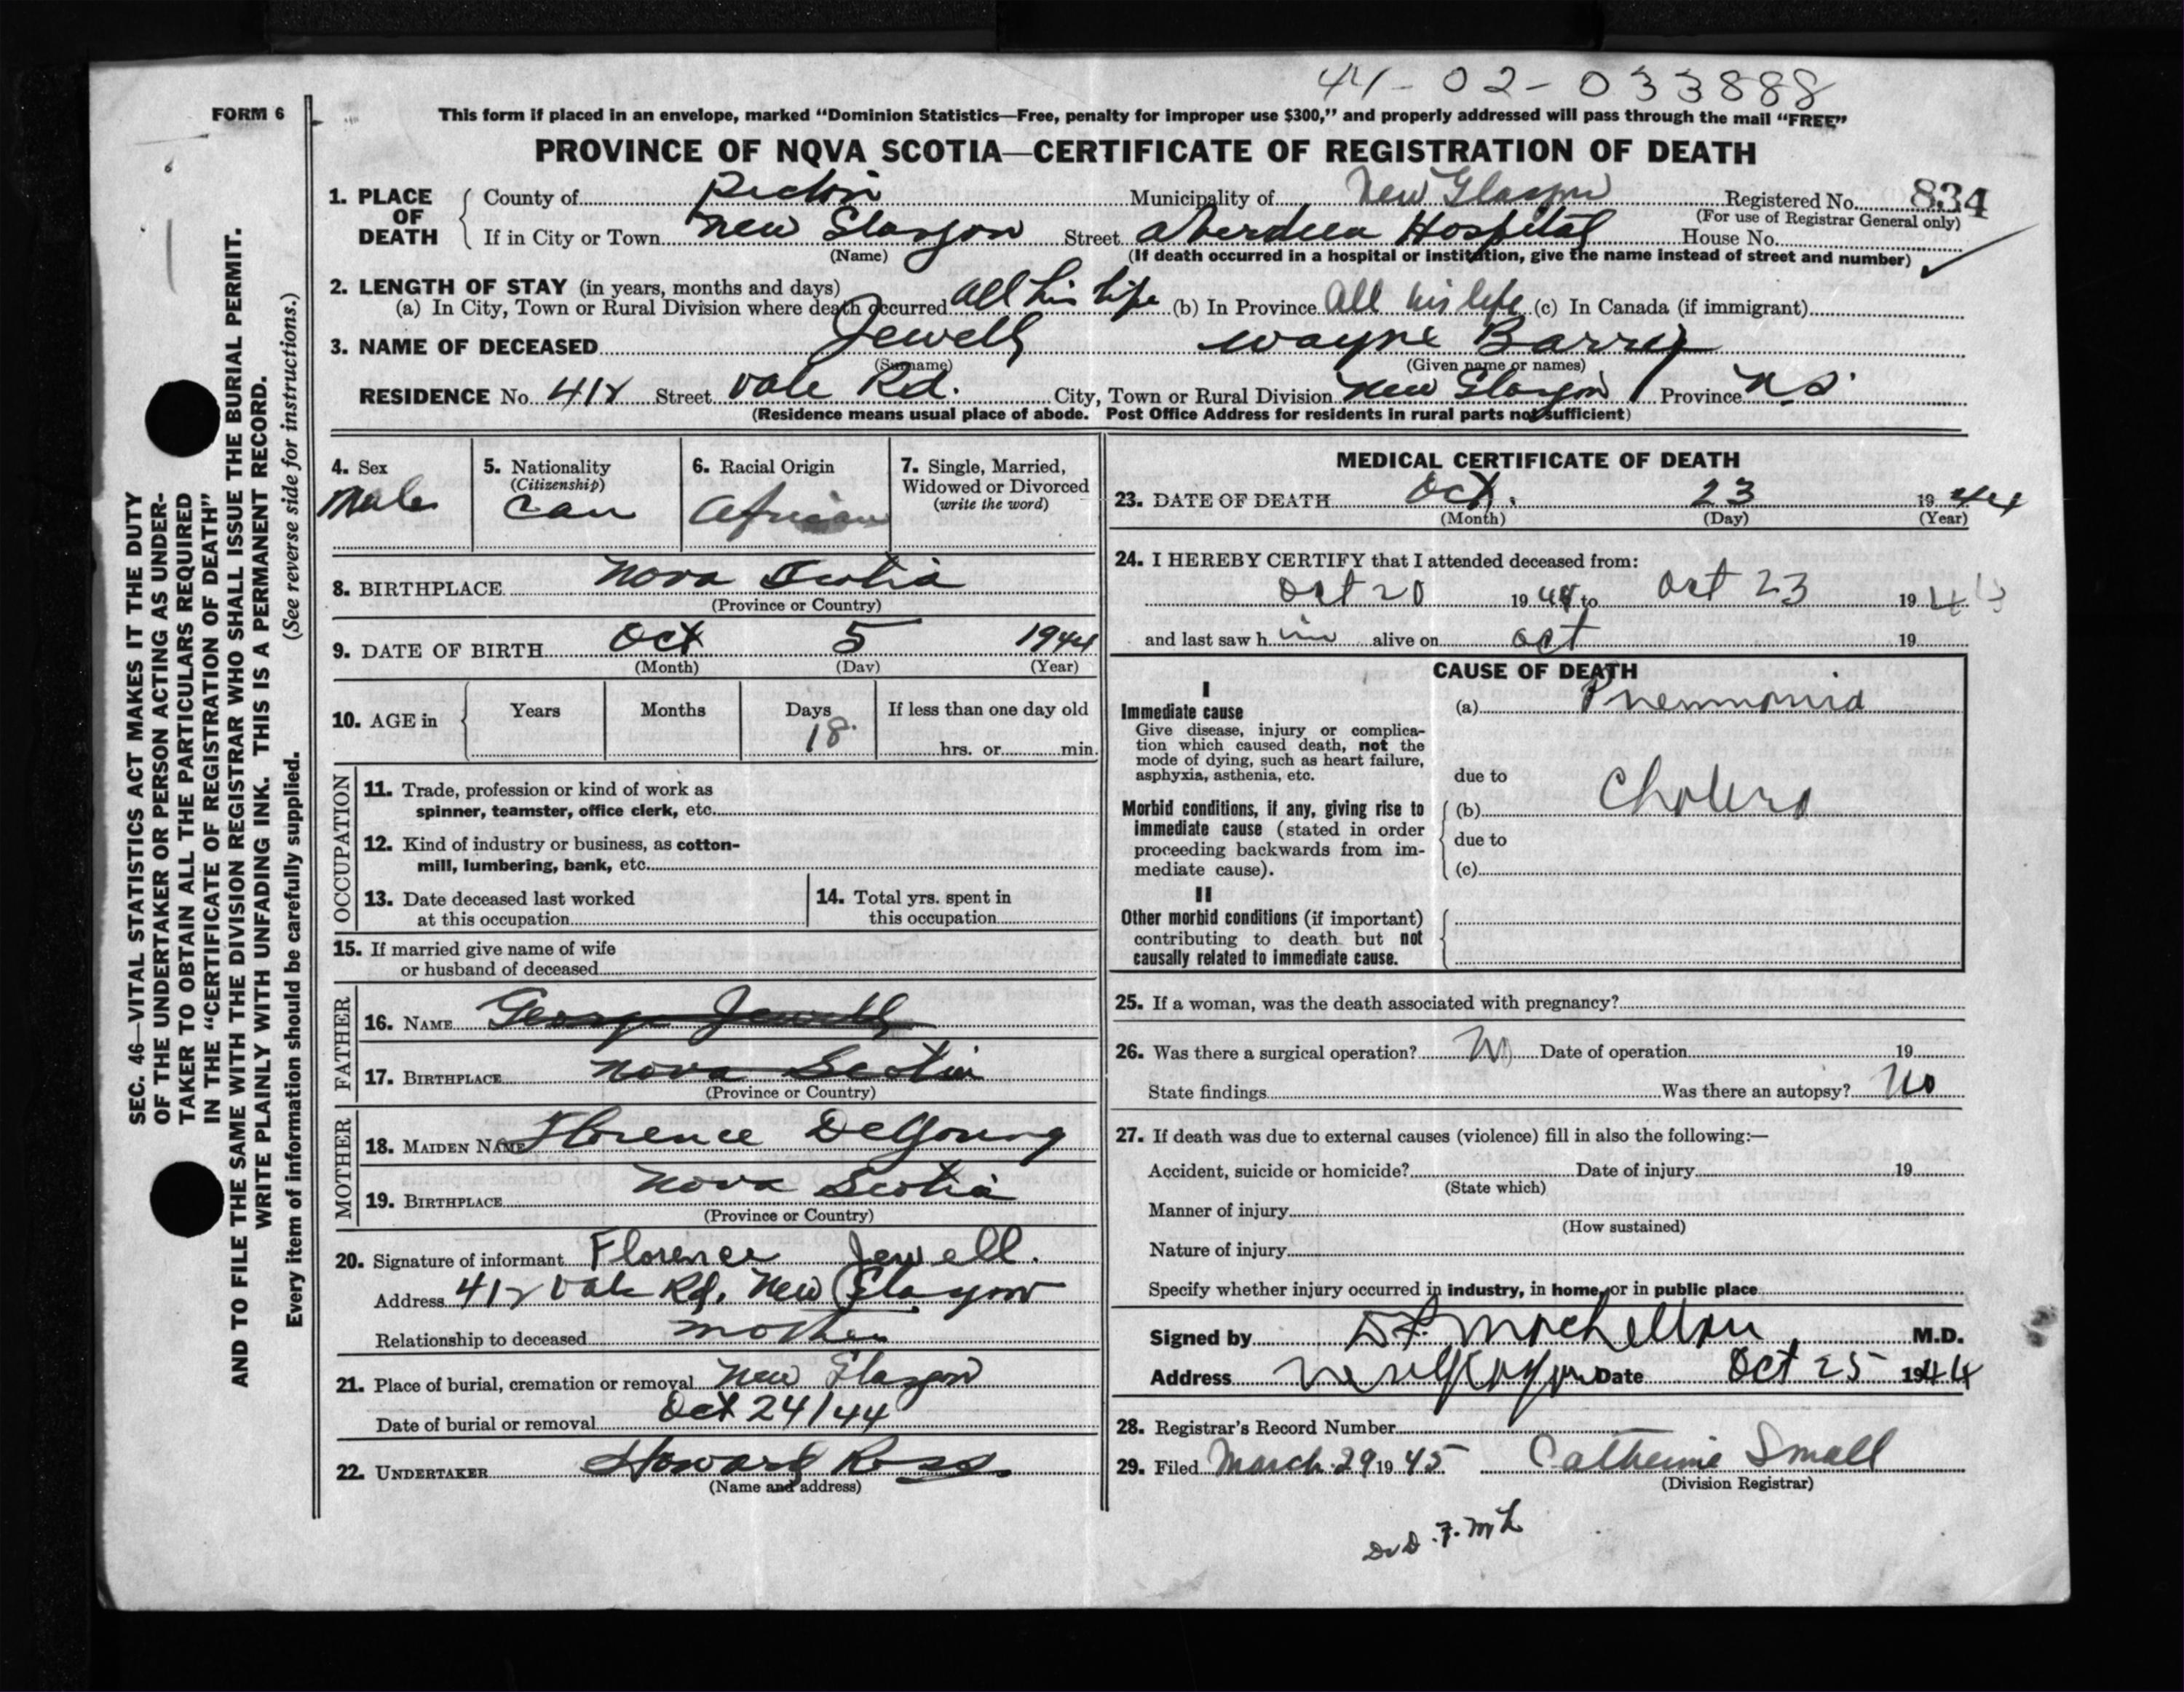 44-02-033888
FORM 6
This form if placed in an envelope, marked "Dominion Statistics—Free, penalty for improper use $300," and properly addressed will pass through the mail "FREE"
PROVINCE OF NOVA SCOTIA—CERTIFICATE OF REGISTRATION OF DEATH
1. PLACE OF DEATH County of Pictou Municipality of New Glasgow Registered No. 834
(For use of Registrar General only)
If in City or Town New Glasgow Street Aberdeen Hospital House No.
(Name) (If death occurred in a hospital or institution, give the name instead of street and number)
2. LENGTH OF STAY (in years, months and days)
(a) In City, Town or Rural Division where death occurred All his life (b) In Province All his life (c) In Canada (if immigrant)
3. NAME OF DECEASED Jewell Wayne Barry
(Surname) (Given name or names)
RESIDENCE No. 412 Street Vale Rd. City, Town or Rural Division New Glasgow Province N.S.
(Residence means usual place of abode. Post Office Address for residents in rural parts not sufficient)
4. Sex
Male
5. Nationality
(Citizenship)
Can
6. Racial Origin
African
7. Single, Married,
Widowed or Divorced
(write the word)
8. BIRTHPLACE Nova Scotia
(Province or Country)
9. DATE OF BIRTH Oct 5 1944
(Month) (Day) (Year)
10. AGE in Years Months Days If less than one day old
18 hrs. or min.
OCCUPATION
11. Trade, profession or kind of work as
spinner, teamster, office clerk, etc.
12. Kind of industry or business, as cotton-
mill, lumbering, bank, etc.
13. Date deceased last worked
at this occupation
14. Total yrs. spent in
this occupation
15. If married give name of wife
or husband of deceased
FATHER
16. NAME George Jewell
17. BIRTHPLACE Nova Scotia
(Province or Country)
MOTHER
18. MAIDEN NAME Florence DeYoung
19. BIRTHPLACE Nova Scotia
(Province or Country)
20. Signature of informant Florence Jewell.
Address 412 Vale Rd. New Glasgow
Relationship to deceased mother
21. Place of burial, cremation or removal New Glasgow
Date of burial or removal Oct 24/44
22. UNDERTAKER Howard Ross
(Name and address)
MEDICAL CERTIFICATE OF DEATH
23. DATE OF DEATH Oct. 23 1944
(Month) (Day) (Year)
24. I HEREBY CERTIFY that I attended deceased from:
Oct 20 1944 to Oct 23 1944
and last saw him alive on Oct 19
CAUSE OF DEATH
I
Immediate cause
Give disease, injury or complica-
tion which caused death, not the
mode of dying, such as heart failure,
asphyxia, asthenia, etc.
(a) Pneumonia
due to
Morbid conditions, if any, giving rise to
immediate cause (stated in order
proceeding backwards from im-
mediate cause).
(b) Cholera
due to
(c)
II
Other morbid conditions (if important)
contributing to death but not
causally related to immediate cause.
25. If a woman, was the death associated with pregnancy?
26. Was there a surgical operation? No Date of operation 19
State findings Was there an autopsy? No
27. If death was due to external causes (violence) fill in also the following:—
Accident, suicide or homicide? Date of injury 19
(State which)
Manner of injury
(How sustained)
Nature of injury
Specify whether injury occurred in industry, in home, or in public place
Signed by M.D.
Address New Glasgow Date Oct 25 1944
28. Registrar's Record Number
29. Filed March 29 1945 Catherine Small
(Division Registrar)
Dr D. F. McL
SEC. 46—VITAL STATISTICS ACT MAKES IT THE DUTY
OF THE UNDERTAKER OR PERSON ACTING AS UNDER-
TAKER TO OBTAIN ALL THE PARTICULARS REQUIRED
IN THE "CERTIFICATE OF REGISTRATION OF DEATH"
AND TO FILE THE SAME WITH THE DIVISION REGISTRAR WHO SHALL ISSUE THE BURIAL PERMIT.
WRITE PLAINLY WITH UNFADING INK. THIS IS A PERMANENT RECORD.
Every item of information should be carefully supplied. (See reverse side for instructions.)